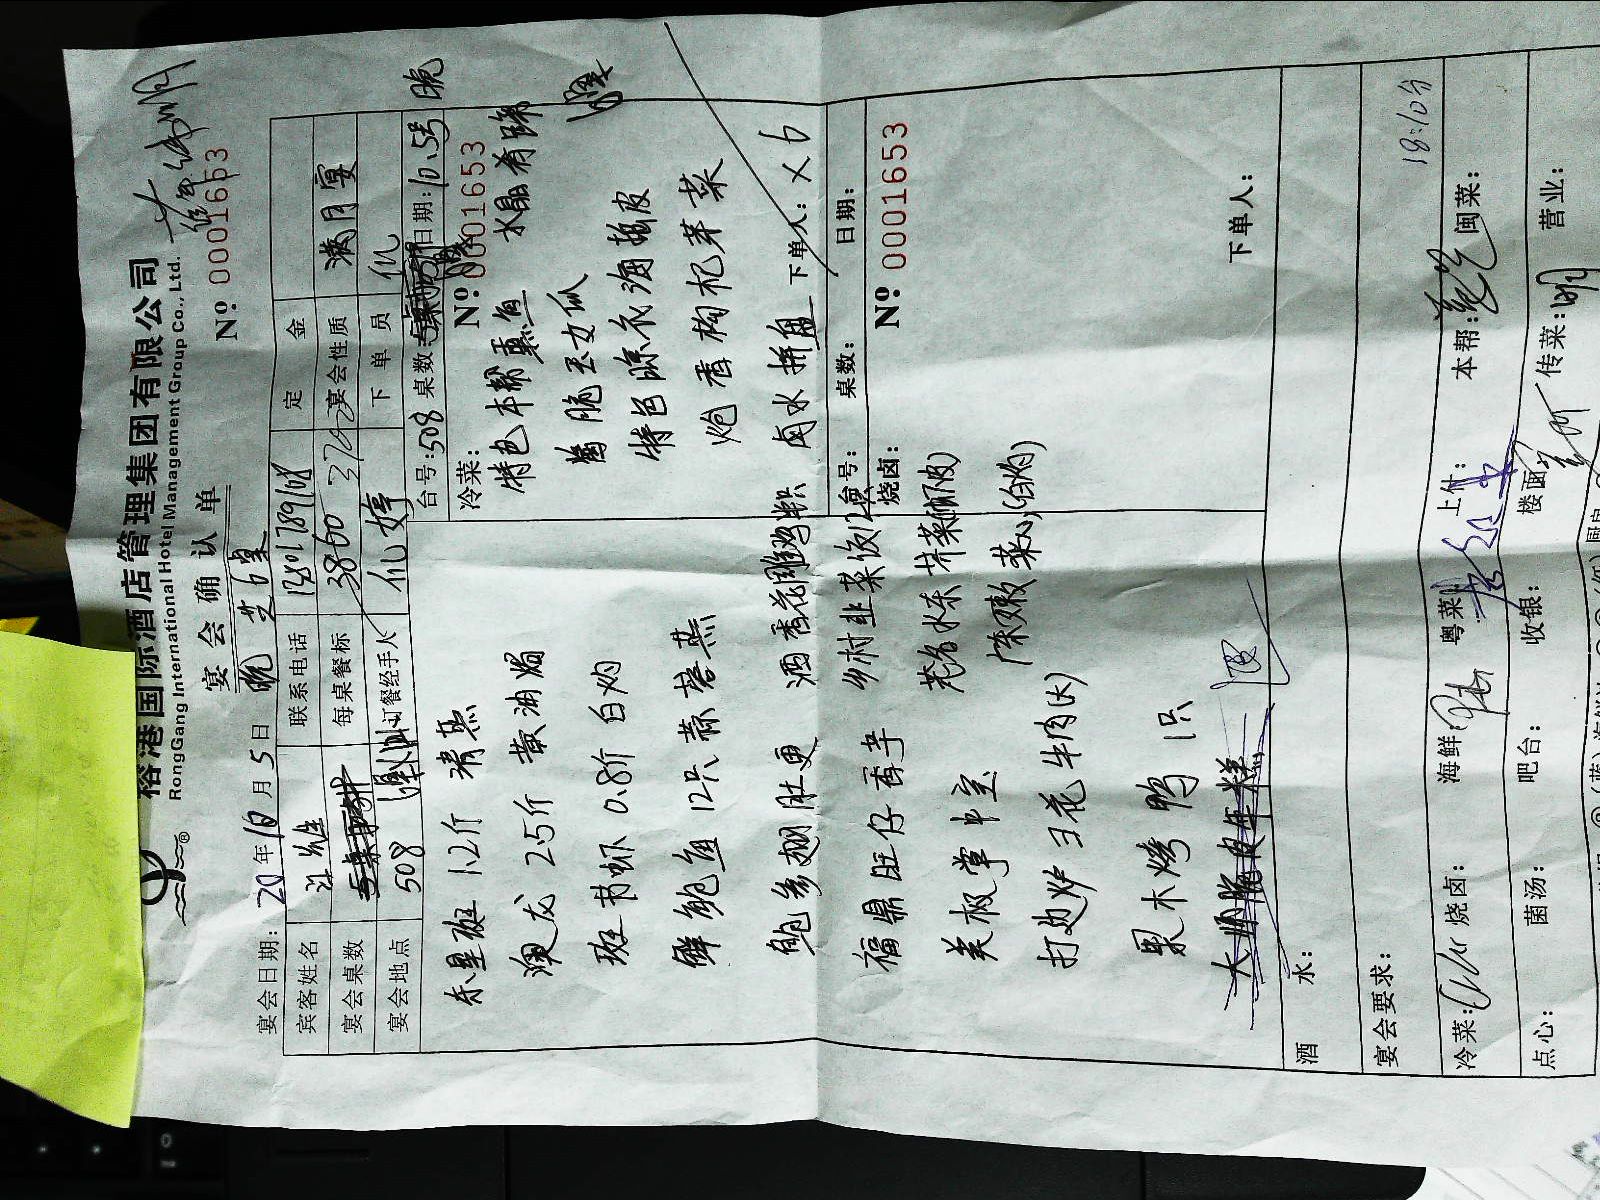 裕港国际酒店管理集团有限公司
RongGang International Hotel Management Group Co., Ltd.
宴会确认单
№ 0001653
宴会日期: 20 年 10 月 5 日 晚
宾客姓名 汪先生 联系电话 定金
宴会桌数 每桌餐标 3860 宴会性质 满月宴
宴会地点 508 订餐经手人 下单员
台号: 508 桌数 日期: 10.5号 晚
冷菜: № 0001653
特色本帮熏鱼 水晶肴蹄
酱脆玉女瓜
特色凉衣海蜇皮
炝香枸杞芽菜
卤水拼盘
下单人: × 6
东星斑 1.2斤 清蒸
澳龙 2.5斤 黄油焗
斑节虾 0.8斤 白灼
鲜鲍鱼 12只 蒜蓉蒸
鲍参翅肚更
酒香花雕鸡
福鼎旺仔香芋
乡村韭菜饭12
美极掌中宝
茂名水东芥菜
打边炉雪花牛肉(大)
广东嫩菜心(白灼)
果木烤鸭 1只
台号: 桌数: 日期:
烧卤: № 0001653
下单人:
酒水:
宴会要求:
18:10分
冷菜: 烧卤: 海鲜: 粤菜: 上什: 本帮: 闽菜:
点心: 菌汤: 吧台: 收银: 楼面: 传菜: 营业: